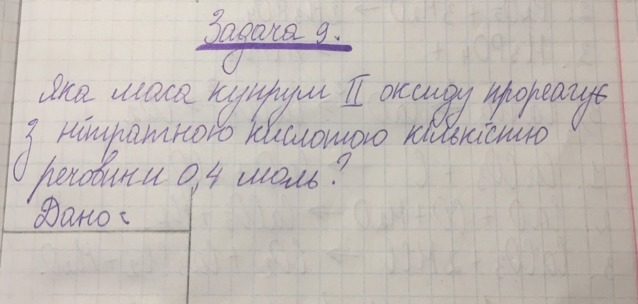 Задача 9.
Яка маса купрум II оксиду прореагує
з нітратною кислотою кількістю
речовини 0,4 моль?
Дано: